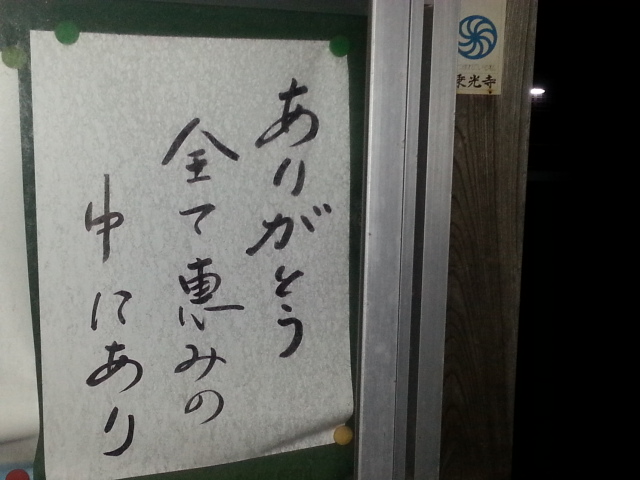 ありがとう
全て恵みの
中にあり
東光寺